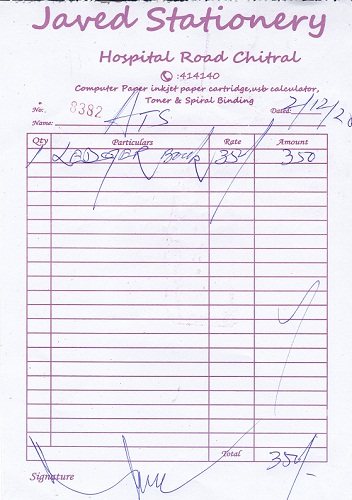 Javed Stationery
Hospital Road Chitral
:414140
Computer Paper inkjet paper cartridge,usb calculator,
Toner & Spiral Binding
No: 8382 Dated: 2/12/20
Name: ATS
Qty Particulars Rate Amount
1 LEDGER Book 350/ 350
Total 350/-
Signature